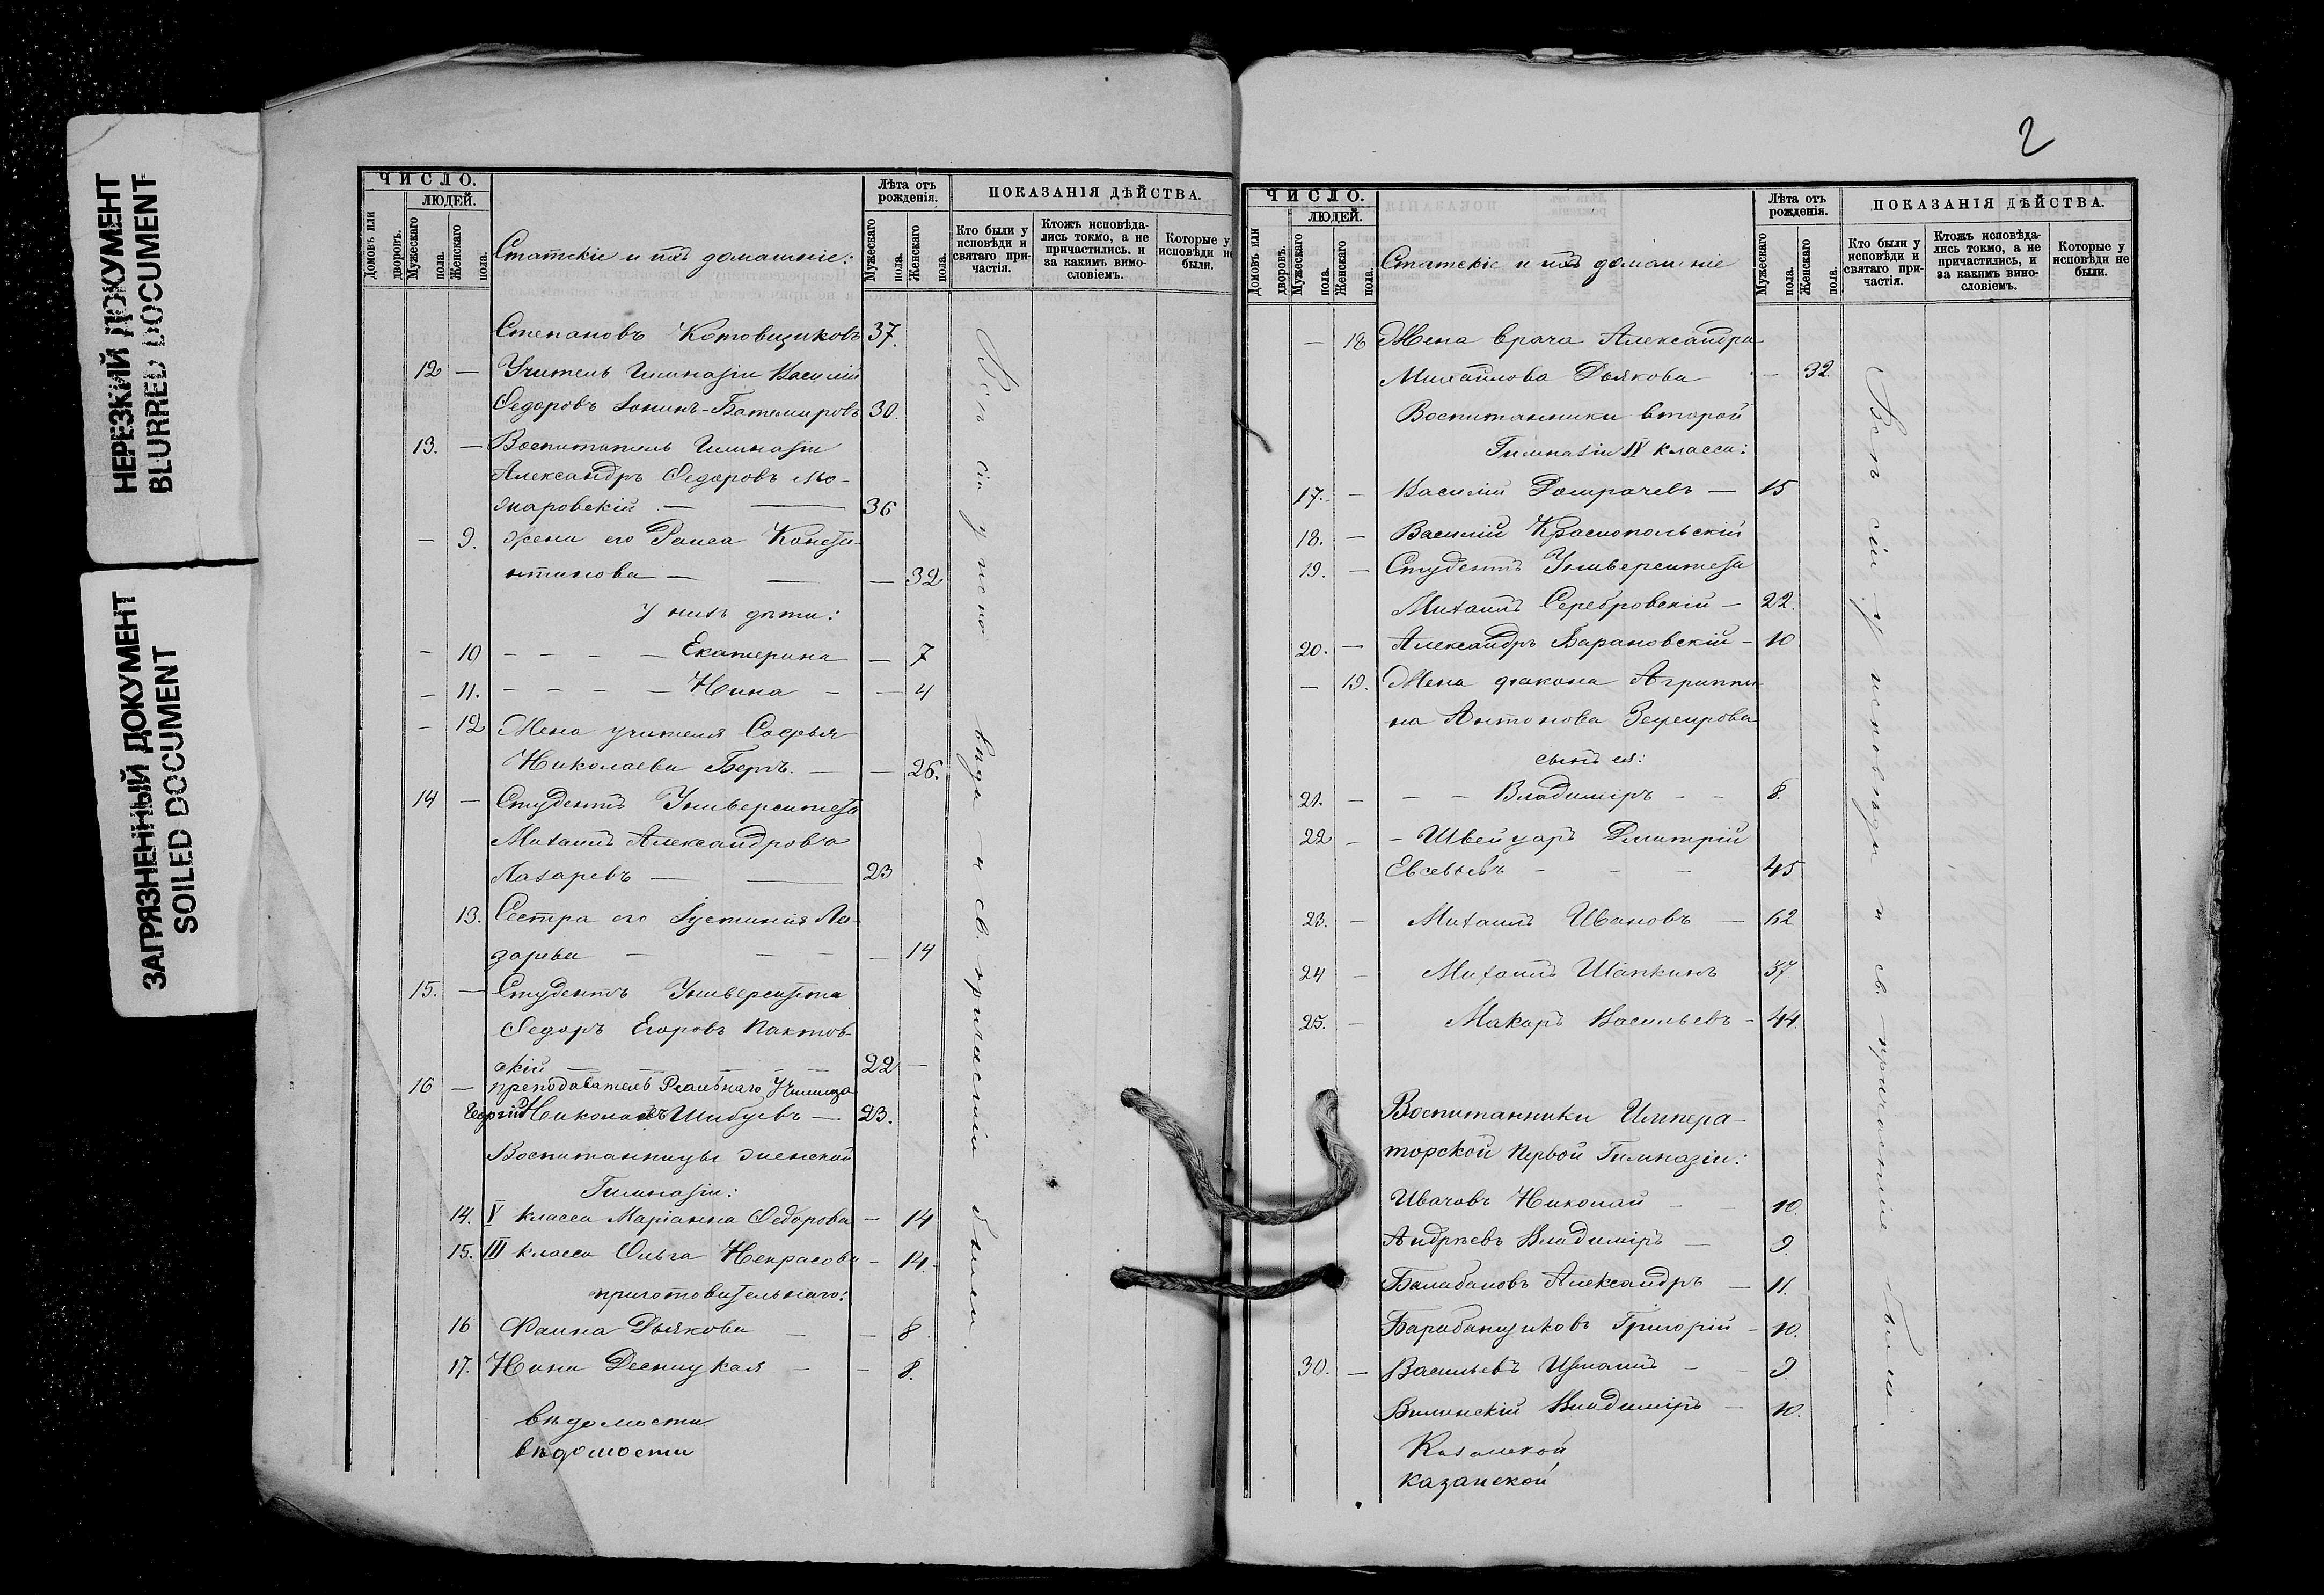 НЕРЕЗКИЙ ДОКУМЕНТ
BLURRED DOCUMENT
ЗАГРЯЗНЕННЫЙ ДОКУМЕНТ
SOILED DOCUMENT
ЧИСЛО.
ЛЮДЕЙ.
Домовъ или дворовъ.
Мужескаго пола.
Женскаго пола.
Статскіе и ихъ домашніе:
Лѣта отъ рожденія.
Мужескаго пола.
Женскаго пола.
ПОКАЗАНІЯ ДѢЙСТВА.
Кто были у исповѣди и святаго причастія.
Ктожъ исповѣдались токмо, а не причастились, и за какимъ винословіемъ.
Которые у исповѣди не были.
Степановъ Котовщиковъ 37.
12 — Учитель Гимназіи Василій
Ѳедоровъ Іонинъ-Батемировъ 30.
13. — Воспитатель Гимназіи
Александръ Ѳедоровъ
36
— 9. жена его Раиса Конста-
нтинова — — — 32
у нихъ дѣти:
— 10 — — — — Екатерина — 7
— 11. — — — — Нина — — 4
— 12 Жена учителя Софья
Николаева Бергъ. — — 26.
14 — Студентъ Университета
Михаилъ Александровъ
Лазаревъ — — 23
13. Сестра его Іустинія Ла-
зарева — — — — 14
15. — Студентъ Университета
Ѳедоръ Егоровъ Пактов-
скій — — — — 22 —
16 — преподаватель Реальнаго Училища
Георгій Николаевъ Шибуевъ — 23.
Воспитанницы женской
Гимназіи:
14. V класса Маріанна Ѳедорова — 14
15. III класса Ольга Некрасова — 14.
приготовительнаго:
16 Фаина Дьякова — — 8.
17. Нина Десницкая — — 8.
вѣдомости
вѣдомости
Всѣ сіи у испо вѣди и св. причастія были.
2
ЧИСЛО.
ЛЮДЕЙ.
Домовъ или дворовъ.
Мужескаго пола.
Женскаго пола.
Статскіе и ихъ домашніе
Лѣта отъ рожденія.
Мужескаго пола.
Женскаго пола.
ПОКАЗАНІЯ ДѢЙСТВА.
Кто были у исповѣди и святаго причастія.
Ктожъ исповѣдались токмо, а не причастились, и за какимъ винословіемъ.
Которые у исповѣди не были.
— 18 Жена врача Александра
Михайлова Дьякова — 32.
Воспитанники второй
Гимназіи IV класса:
17. — Василій Домрачевъ — 15
18. — Василій Краснопольскій
19. — Студентъ Университета
Михаилъ Серебровскій — 22.
20. — Александръ Барановскій — 10
— 19. Жена діакона Агриппи-
на Антонова Зефирова
сынъ ея:
21. — — — Владиміръ — — 8.
22 — — Швейцаръ Дмитрій
Евсевьевъ — — — 45
23. — Михаилъ Ивановъ — 62
24 — Михаилъ Шапкинъ 37
25. — Макаръ Васильевъ — 44.
Воспитанники Импера-
торской Первой Гимназіи:
Ивачовъ Николай — — 10.
Андреевъ Владиміръ — 9.
Балабановъ Александръ — 11.
Барабанщиковъ Григорій — 10.
30. — Васильевъ Измаилъ — — 9.
Вилинскій Владиміръ — 10.
Казанской
казанской
Всѣ сіи у исповѣди и св. причастія были.